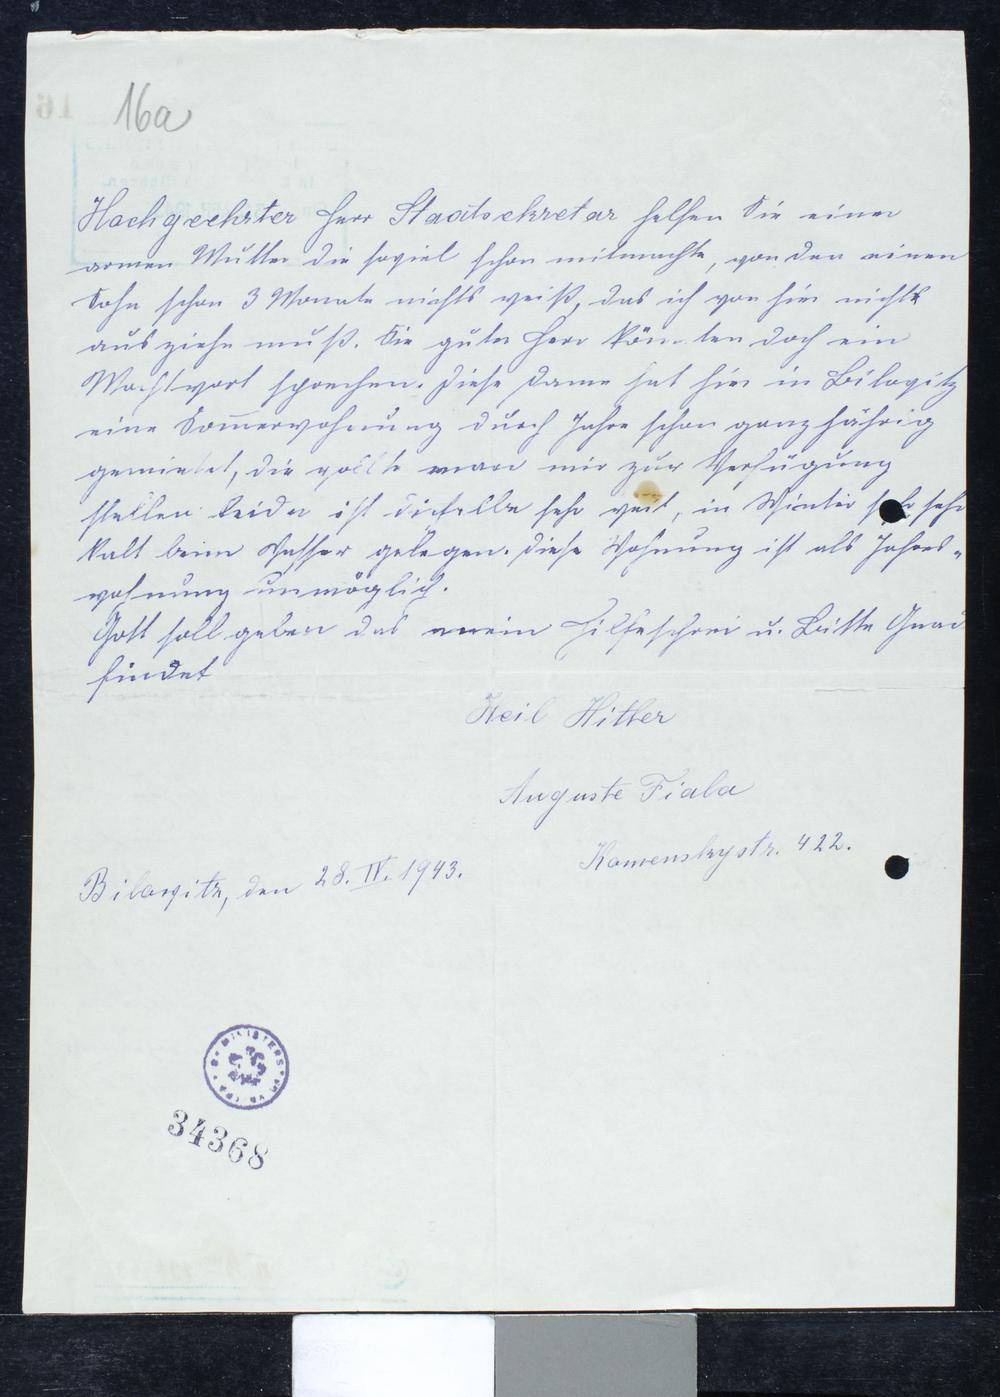 16a
Hochgeehrter Herr Staatsekretar helfen Sie einer
armen Mutter die soviel schon mitmachte, von den einen
Sohn schon 3 Monate nichts weiß, das ich von hier nicht
ausziehn muß. Sie guter Herr könnten doch ein
Machtwort sprechen. Diese Dame hat hier in Bilowitz
eine Sommerwohnung durch Jahre schon ganzjährig
gemietet, die wollte man mir zur Verfügung
stellen leider ist dieselbe sehr weit, in Winter sehr sehr
kalt beim Wasser gelegen. Diese Wohnung ist als Jahres-
wohnung unmöglich.
Gott soll geben das mein Hilfeschrei u. Bitte Gnad
findet
Heil Hitler
Auguste Fiala
Komenskystr. 422.
Bilowitz, den 28. IV. 1943.
MINISTERS
34368